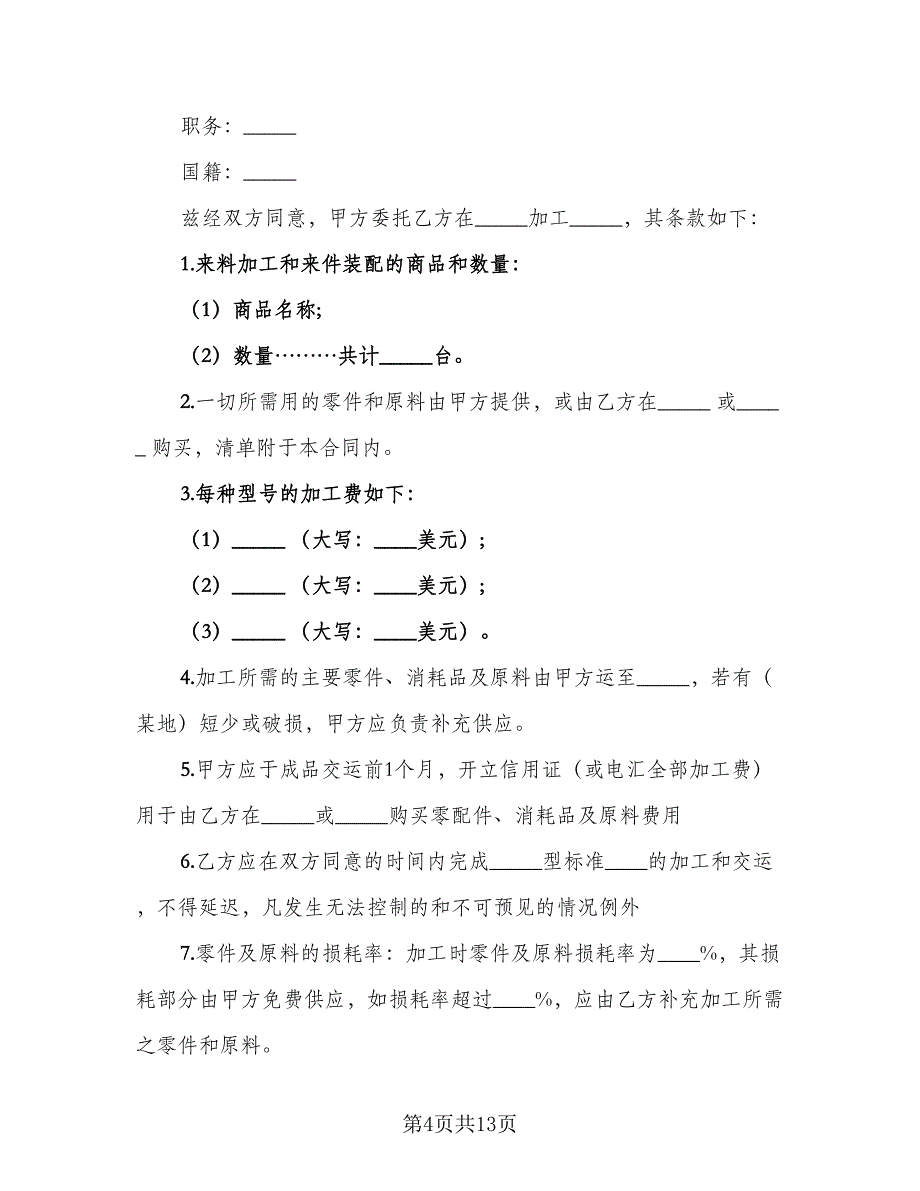 职务：_____
国籍：_____
兹经双方同意，甲方委托乙方在_____加工_____，其条款如下：
1.来料加工和来件装配的商品和数量：
（1）商品名称;
（2）数量………共计_____台。
2.一切所需用的零件和原料由甲方提供，或由乙方在_____ 或____
_ 购买，清单附于本合同内。
3.每种型号的加工费如下：
（1）_____ （大写：____美元）;
（2）_____ （大写：____美元）;
（3）_____ （大写：____美元）。
4.加工所需的主要零件、消耗品及原料由甲方运至_____，若有（
某地）短少或破损，甲方应负责补充供应。
5.甲方应于成品交运前1个月，开立信用证（或电汇全部加工费）
用于由乙方在_____或_____购买零配件、消耗品及原料费用
6.乙方应在双方同意的时间内完成_____型标准____的加工和交运
，不得延迟，凡发生无法控制的和不可预见的情况例外
7.零件及原料的损耗率：加工时零件及原料损耗率为____%，其损
耗部分由甲方免费供应，如损耗率超过____%，应由乙方补充加工所需
之零件和原料。
第4页共13页